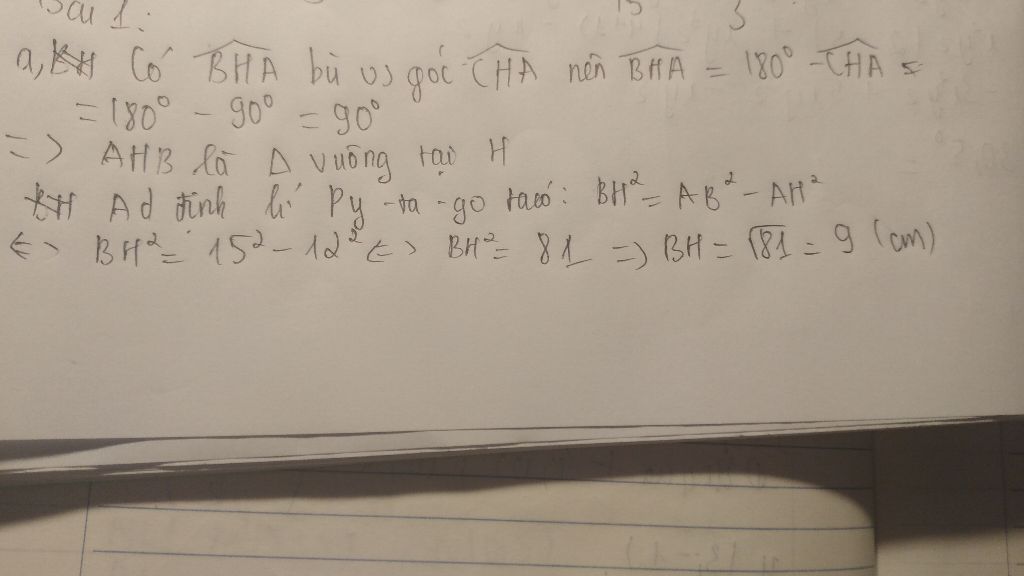 Bài 1:
15 3
a, Có BHA bù vs góc CHA nên BHA = 180° - CHA =
= 180° - 90° = 90°
=> AHB là Δ vuông tại H
Ad định lí Py-ta-go ta có: BH² = AB² - AH²
<=> BH² = 15² - 12² <=> BH² = 81 => BH = √81 = 9 (cm)